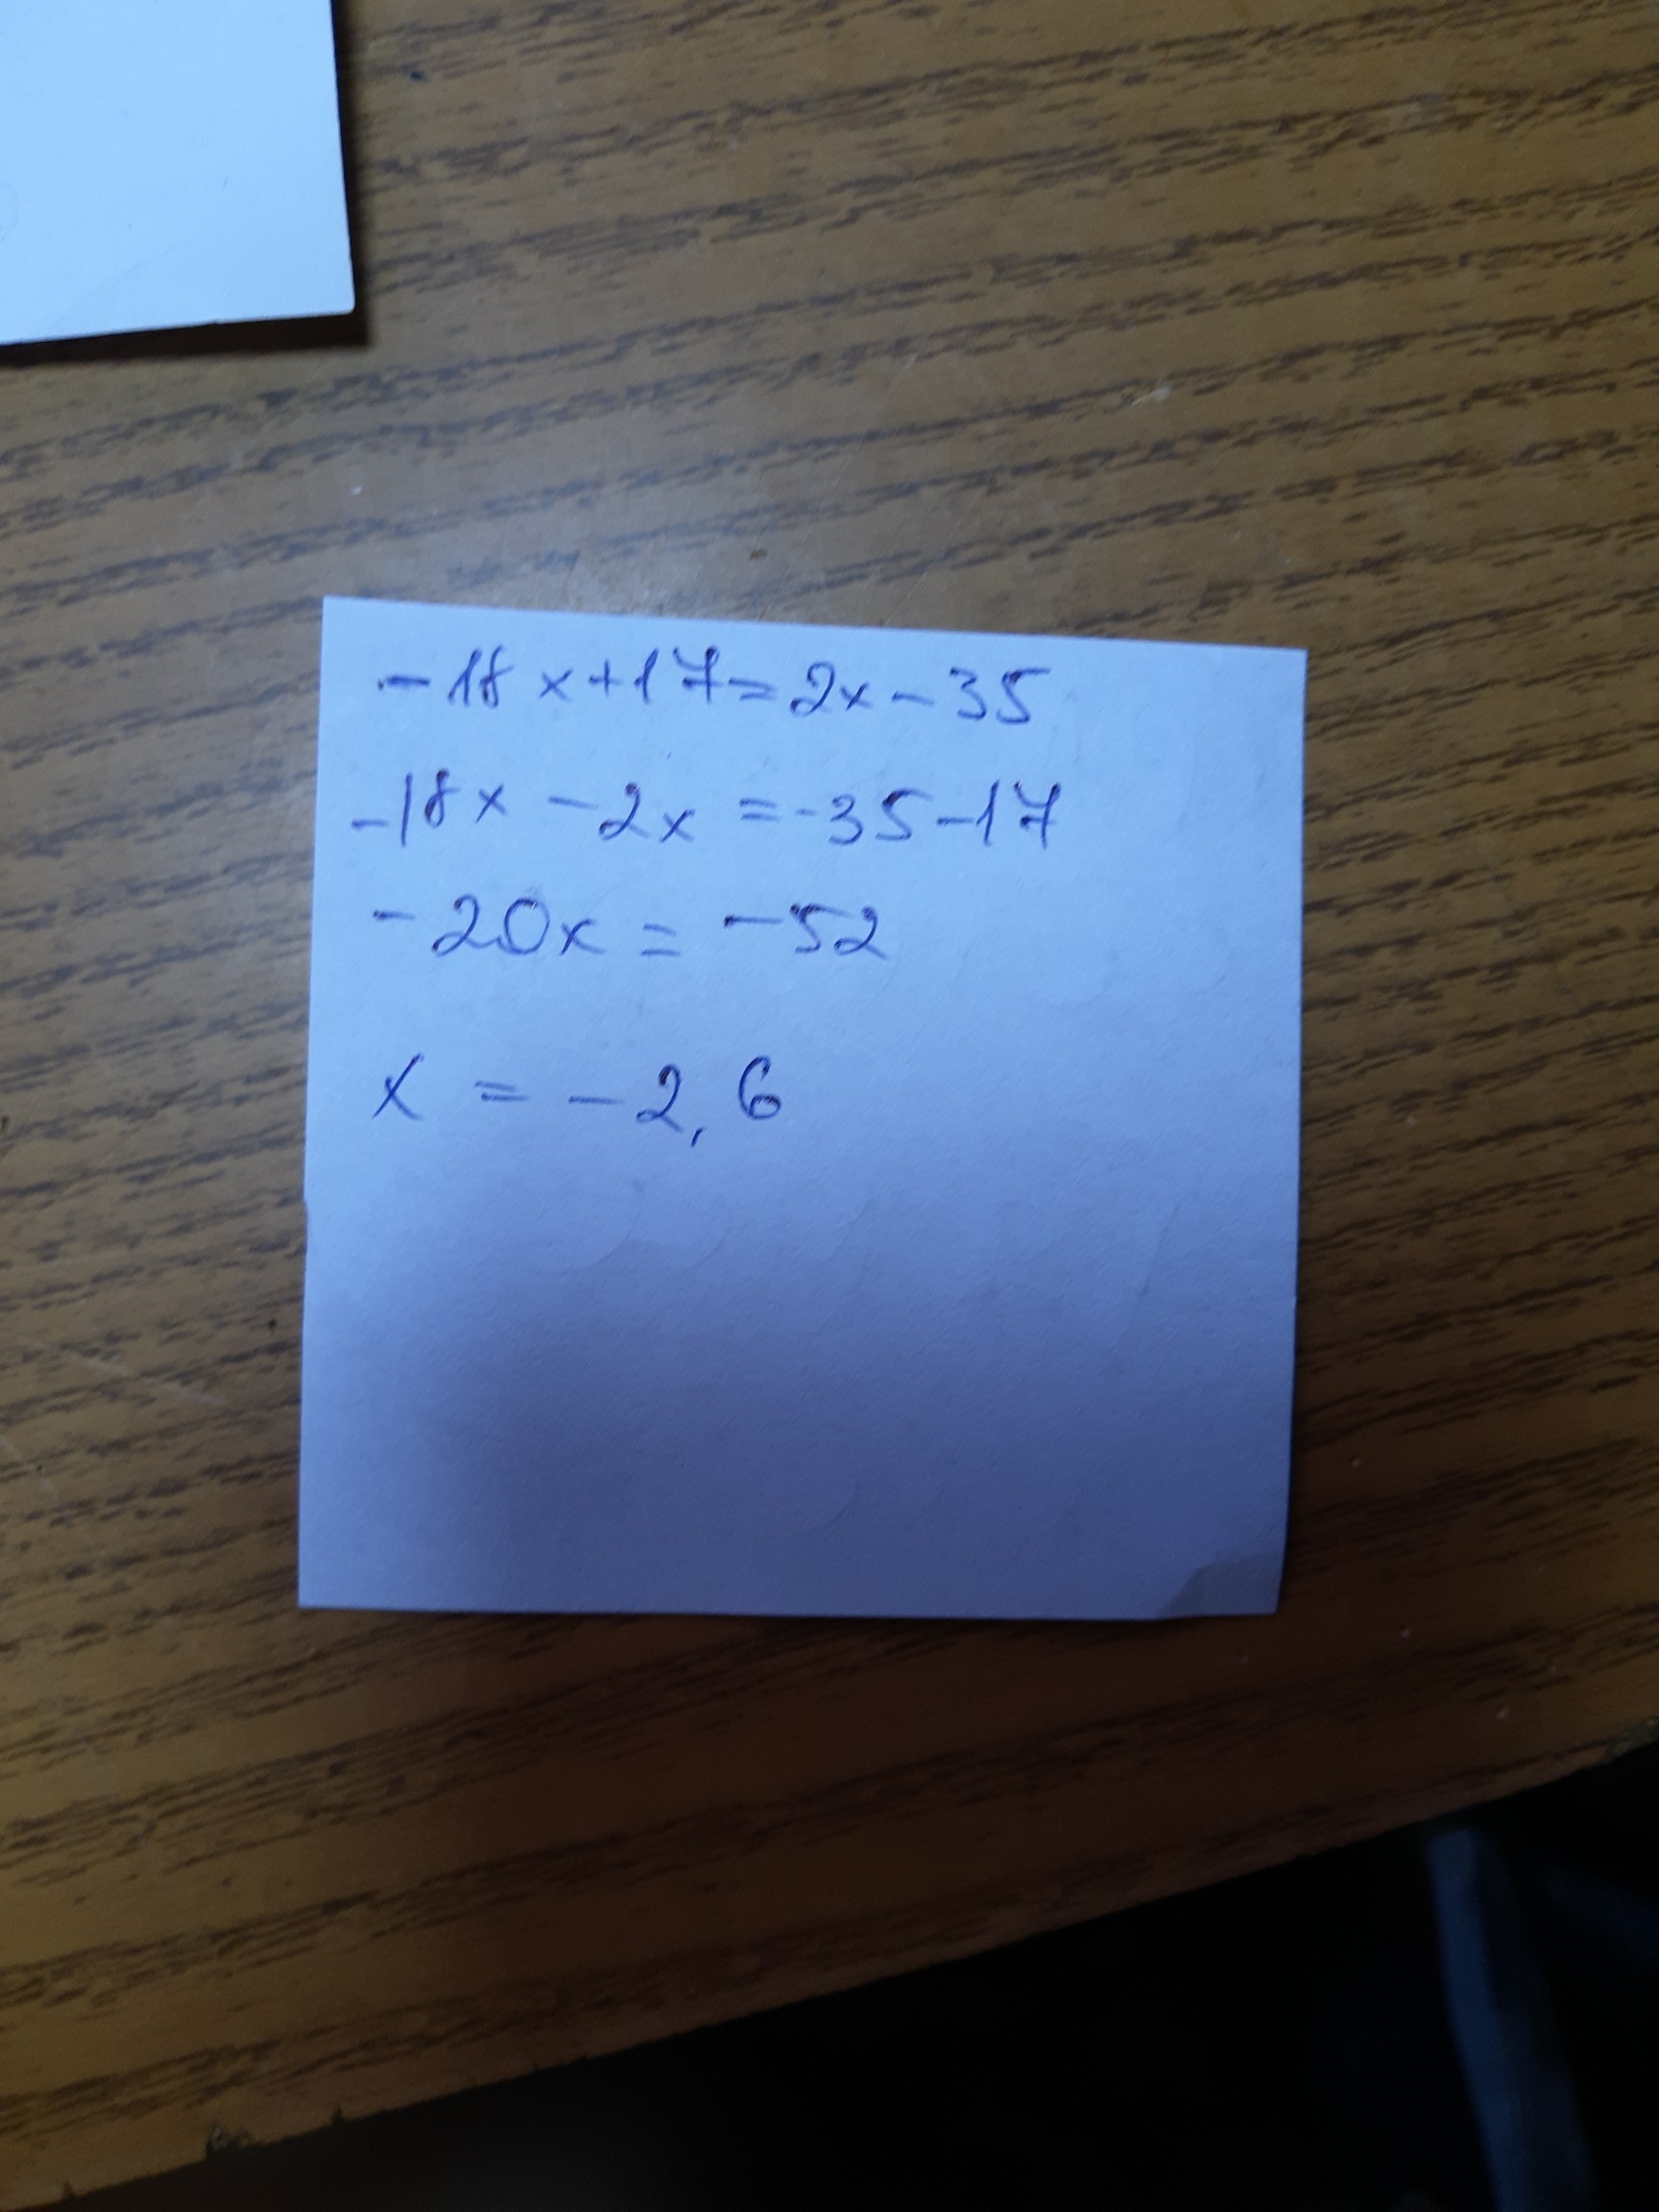 -18x+17=2x-35
-18x-2x=-35-17
-20x=-52
x=-2,6